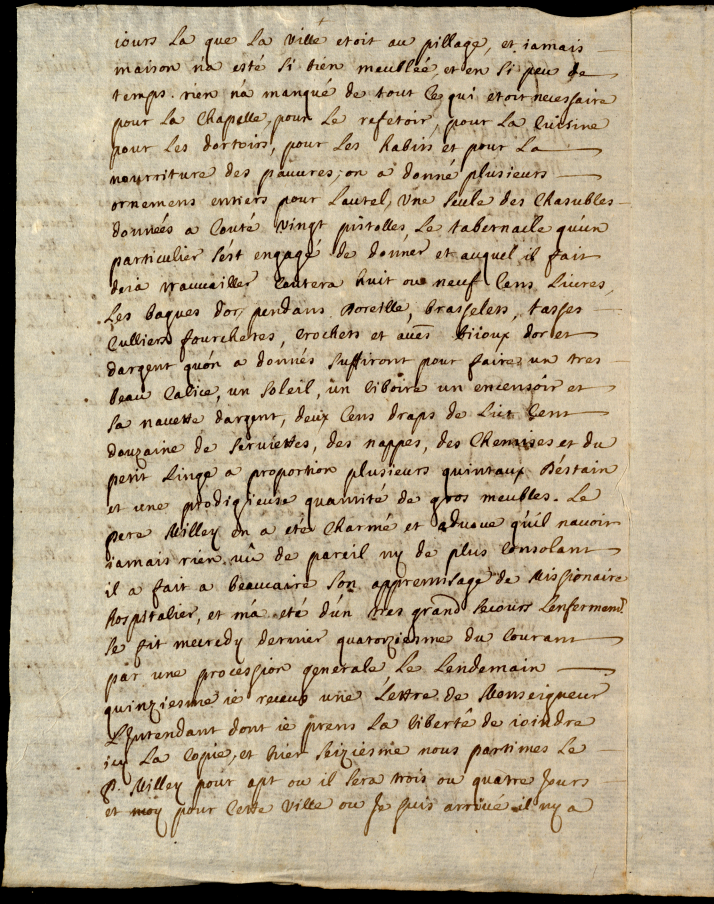 iours La que La Ville etoit au pillage, et iamais
maison na esté si bien meublée, et en si peu de
temps. rien na manqué de tout ce qui etoit necessaire
pour La Chapelle, pour Le refetoir, pour La Cuisine
pour Les dortoirs, pour Les habits et pour La
nourriture des pauures, on a donné plusieurs
ornemens entiers pour Lautel, Une seule des Chasubles
données a Couté Vingt pistolles, Le tabernacle quun
particulier s'est engagé de donner et auquel il fait
deia trauuailler Coutera huit ou neuf Cens Liures,
Les bagues dor, pendans Doreille, brasselets, tasses
Culliers fourchetes, Crochets et autres biioux dor et
dargent quón a donnés suffiront pour faire un tres
beau Calice, un soleil, un Ciboire un encensoir et
sa nauette dargent, deux Cens draps de Lict Cent
douzaine de seruiettes, des nappes, des Chemises et du
petit Linge a proportion plusieurs quintaux Déstain
et une prodigieuse quantité de gros meubles. Le
pere Milley en a eté Charmé et aduoue quil nauoit
iamais rien uû de pareil ny de plus Consolant
il a fait a beaucaire son apprentisage de Missionaire
hospitalier, et ma eté dún tres grand secours Lenfermemt
se fit mecredy dernier quatorziesme du Courant
par une procession generale Le Lendemain
quinziesme ie receus une Lettre de Monseigneur
LIntendant dont ie prens La liberté de ioindre
icy La Copie, et hier seiziesme nous partimes Le
P. Milley pour apt ou il sera trois ou quatre Jours
et moy pour Cette Ville ou Je suis arriué il ny a